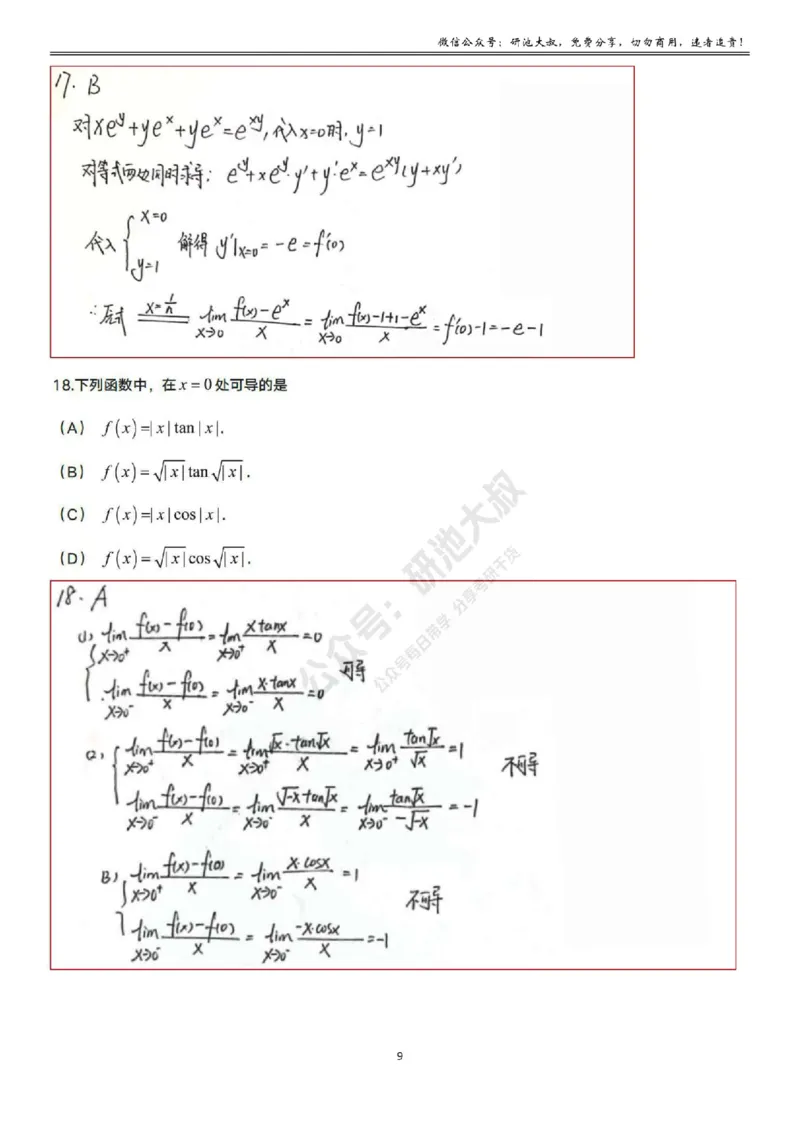 微信公众号：研池大叔，免费分享，切勿商用，违者追责！
17. B
对xe^y+ye^x+ye^x=e^{xy},代入x=0时,y=1
对等式两边同时求导：e^y+xe^y·y'+y'·e^x=e^{xy}(y+xy')
代入{x=0 y=1 解得 y'|_{x=0}=-e=f'(0)
∴原式 x=1/n lim_{x→0} (f(x)-e^x)/x = lim_{x→0} (f(x)-1+1-e^x)/x = f'(0)-1=-e-1
18.下列函数中，在 x = 0 处可导的是
（A） f(x)=|x|tan|x|.
（B） f(x)=√|x| tan√|x|.
（C） f(x)=|x|cos|x|.
（D） f(x)=√|x| cos√|x|.
18. A
(1) lim_{x→0⁺} (f(x)-f(0))/x = lim_{x→0⁺} (x tanx)/x =0
lim_{x→0⁻} (f(x)-f(0))/x = lim_{x→0⁻} (x·tanx)/x =0 可导
(2) lim_{x→0⁺} (f(x)-f(0))/x = lim_{x→0⁺} (√x·tan√x)/x = lim_{x→0⁺} (tan√x)/√x =1
lim_{x→0⁻} (f(x)-f(0))/x = lim_{x→0⁻} (√-x tan√x)/x = lim_{x→0⁻} (tan√x)/(-√-x) = -1 不可导
(3) lim_{x→0⁺} (f(x)-f(0))/x = lim_{x→0⁻} (x·cosx)/x =1
lim_{x→0⁻} (f(x)-f(0))/x = lim_{x→0⁻} (-x·cosx)/x =-1 不可导
公众号：研池大叔
公众号每日带学 分享考研干货
9